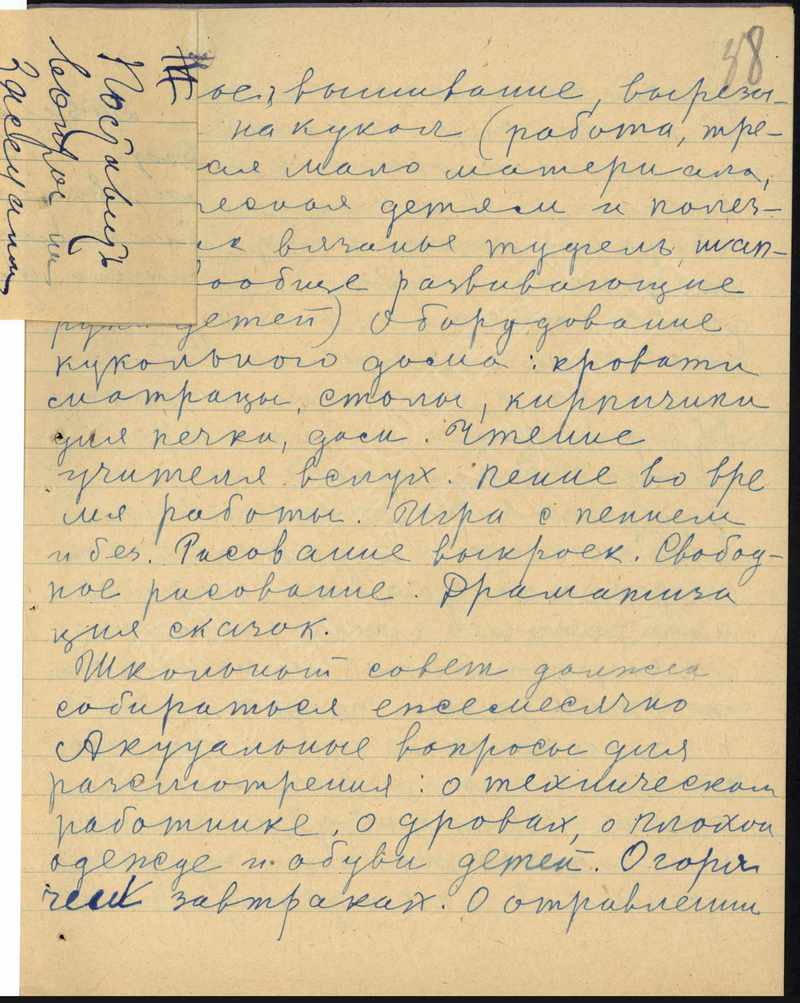 38
ое, вышивание, вырезы-
на кукол (работа, тре-
ая мало материала,
ресная детям и полез-
вязанье туфель, шап-
вообще развивающие
руки детей) Оборудование
кукольного дома: кровати
матрацы, столы, кирпичики
для печки, дом. Чтение
учителя вслух. пение во вре
мя работы. Игра с пением
и без. Рисование выкроек. Свобод-
ное рисование. Драматиза
ция сказок.
Школьный совет должен
собираться ежемесячно
Акууальные вопросы для
рассмотрения: о техническом
работнике, о дровах, о плохой
одежде и обуви детей. О горя
чих завтраках. О отравлении
Поставить
вопрос на